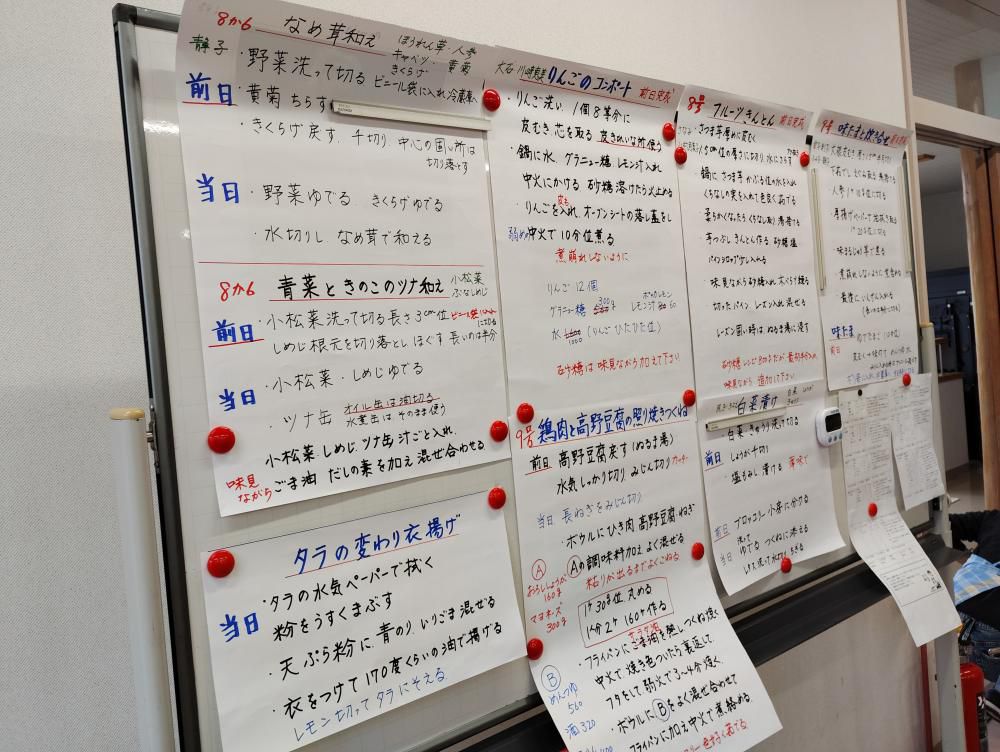 8か6 なめ茸和え
ほうれん草・人参
キャベツ・黄菊
きくらげ
静子
・野菜洗って切る ビニール袋に入れ冷蔵庫へ
前日
・黄菊 ちらす
・きくらげ戻す、千切り、中心の固い所は
切り落とす
当日
・野菜ゆでる、きくらげゆでる
・水切りし、なめ茸で和える
8か6 青菜ときのこのツナ和え 小松菜
ぶなしめじ
前日
・小松菜洗って切る 長さ3cm位
しめじ根元を切り落とし ほぐす 長いのは半分
当日
・小松菜・しめじゆでる
・ツナ缶 オイル缶は油切る
水煮缶はそのまま使う
・小松菜 しめじ ツナ缶 汁ごと入れ、
味見ながら
ごま油 だしの素を加え 混ぜ合わせる
タラの変わり衣揚げ
当日
・タラの水気 ペーパーで拭く
粉をうすくまぶす
・天ぷら粉に 青のり、いりごま混ぜる
・衣をつけて170度くらいの油で揚げる
レモン切って タラにそえる
りんごのコンポート 前日完成
・りんご洗い、1個8等分に
皮むき 芯を取る 皮きれいな所使う
・鍋に水、グラニュー糖 レモン汁入れ
中火にかける 砂糖溶けたら火止める
・りんごを入れ オーブンシートの落し蓋をし
皮も
弱めの中火で10分位煮る
煮崩れしないように
りんご 12個
グラニュー糖 300g
レモン汁 60
水 1000 (りんごひたひた位)
砂糖は味見ながら加えて下さい
9号 鶏肉と高野豆腐の照り焼きつくね
前日 高野豆腐戻す(ぬるま湯)
水気しっかり切り みじん切り
当日 長ねぎをみじん切り
・ボウルにひき肉 高野豆腐 ねぎ
Ⓐの調味料加え よく混ぜる
粘りが出るまでよくこねる
Ⓐ
おろししょうが
160g
マヨネーズ
300g
1ケ 30g位 丸める
1人分2ケ 160ケ作る
サラダ油
・フライパンにごま油を熱しつくね焼く
中火で、焼き色ついたら裏返して
フタをして 弱火で3〜4分焼く、
・ボウルにⒷをよく混ぜ合わせて
フライパンに加え 中火で煮絡める、
Ⓑ
めんつゆ
560
酒 320
8号 フルーツきんとん 前日完成
・さつま芋厚めに皮むく
1.5cm位の厚さに切り、水にさらす
・鍋に さつま芋 かぶる位の水を入れ
くちなしの実を入れて色良く茹でる
・柔らかくなったらくちなし取り 湯捨てる
・芋つぶし きんとん作る 砂糖 塩
パインシロップ少し入れる
味見ながら砂糖入れ 木べらで練る
・切ったパイン、レーズン入れ混ぜる
・レーズン固い時は、ぬるま湯に浸す
砂糖レシピ
味見ながら 追加して下さい
白菜漬け
前日
・白菜 きゅうり洗い切る
・しょうが千切り
・塩もみし 漬ける 薄味で
前日 ブロッコリー 小房に分ける
洗って
当日 ゆでる つくねに添える
9号 味たまと炊き合せ
味たま
前日